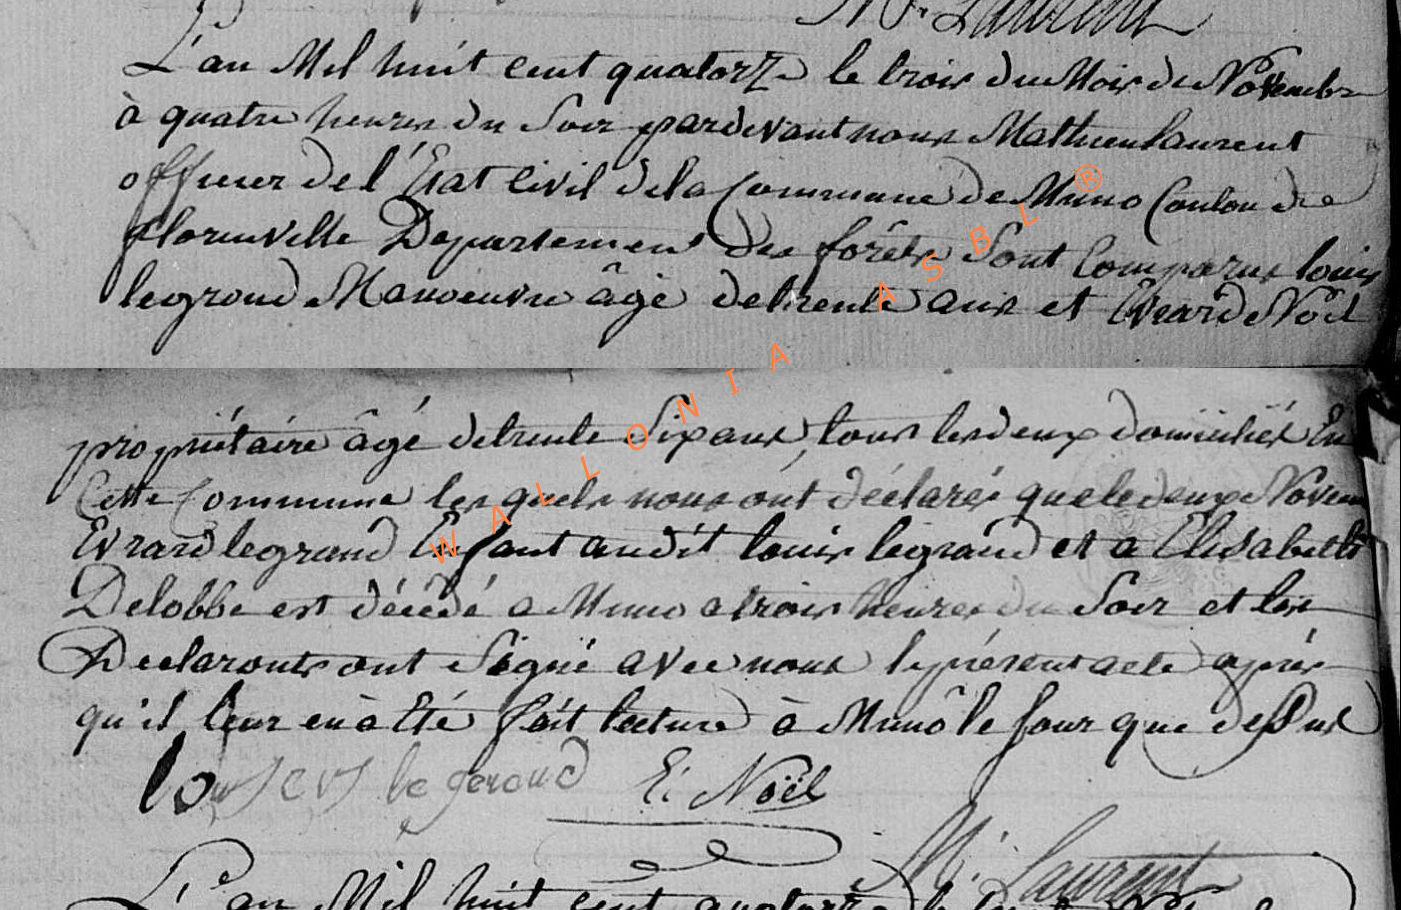 M. Laurent
L'an Mil huit cent quatorze le trois du Mois de Novembre
à quatre heures du Soir pardevant nous Mathieu Laurent
officier de l'État Civil de la Commune de Muno Canton de
florenville Departement des forêts Sont Comparus louis
legrand Manoeuvre âgé de trente ans et Everard Noël
propriétaire âgé de trente Six ans, tous les deux domiciliés En
Cette Commune lesquels nous ont déclarés que le deux Novem
Evrard legrand Enfant audit louis legrand et a Elisabeth
Delobbe est décédé a Muno a trois heures du Soir et les
Declarants ont Signé avec nous le présent acte après
qu'il leur en à Été fait lecture à Muno le Jour que dessus
legeroud E: Noël
M. Laurent
L'an Mil huit cent quatorze le
WALLONIA ASBL ®